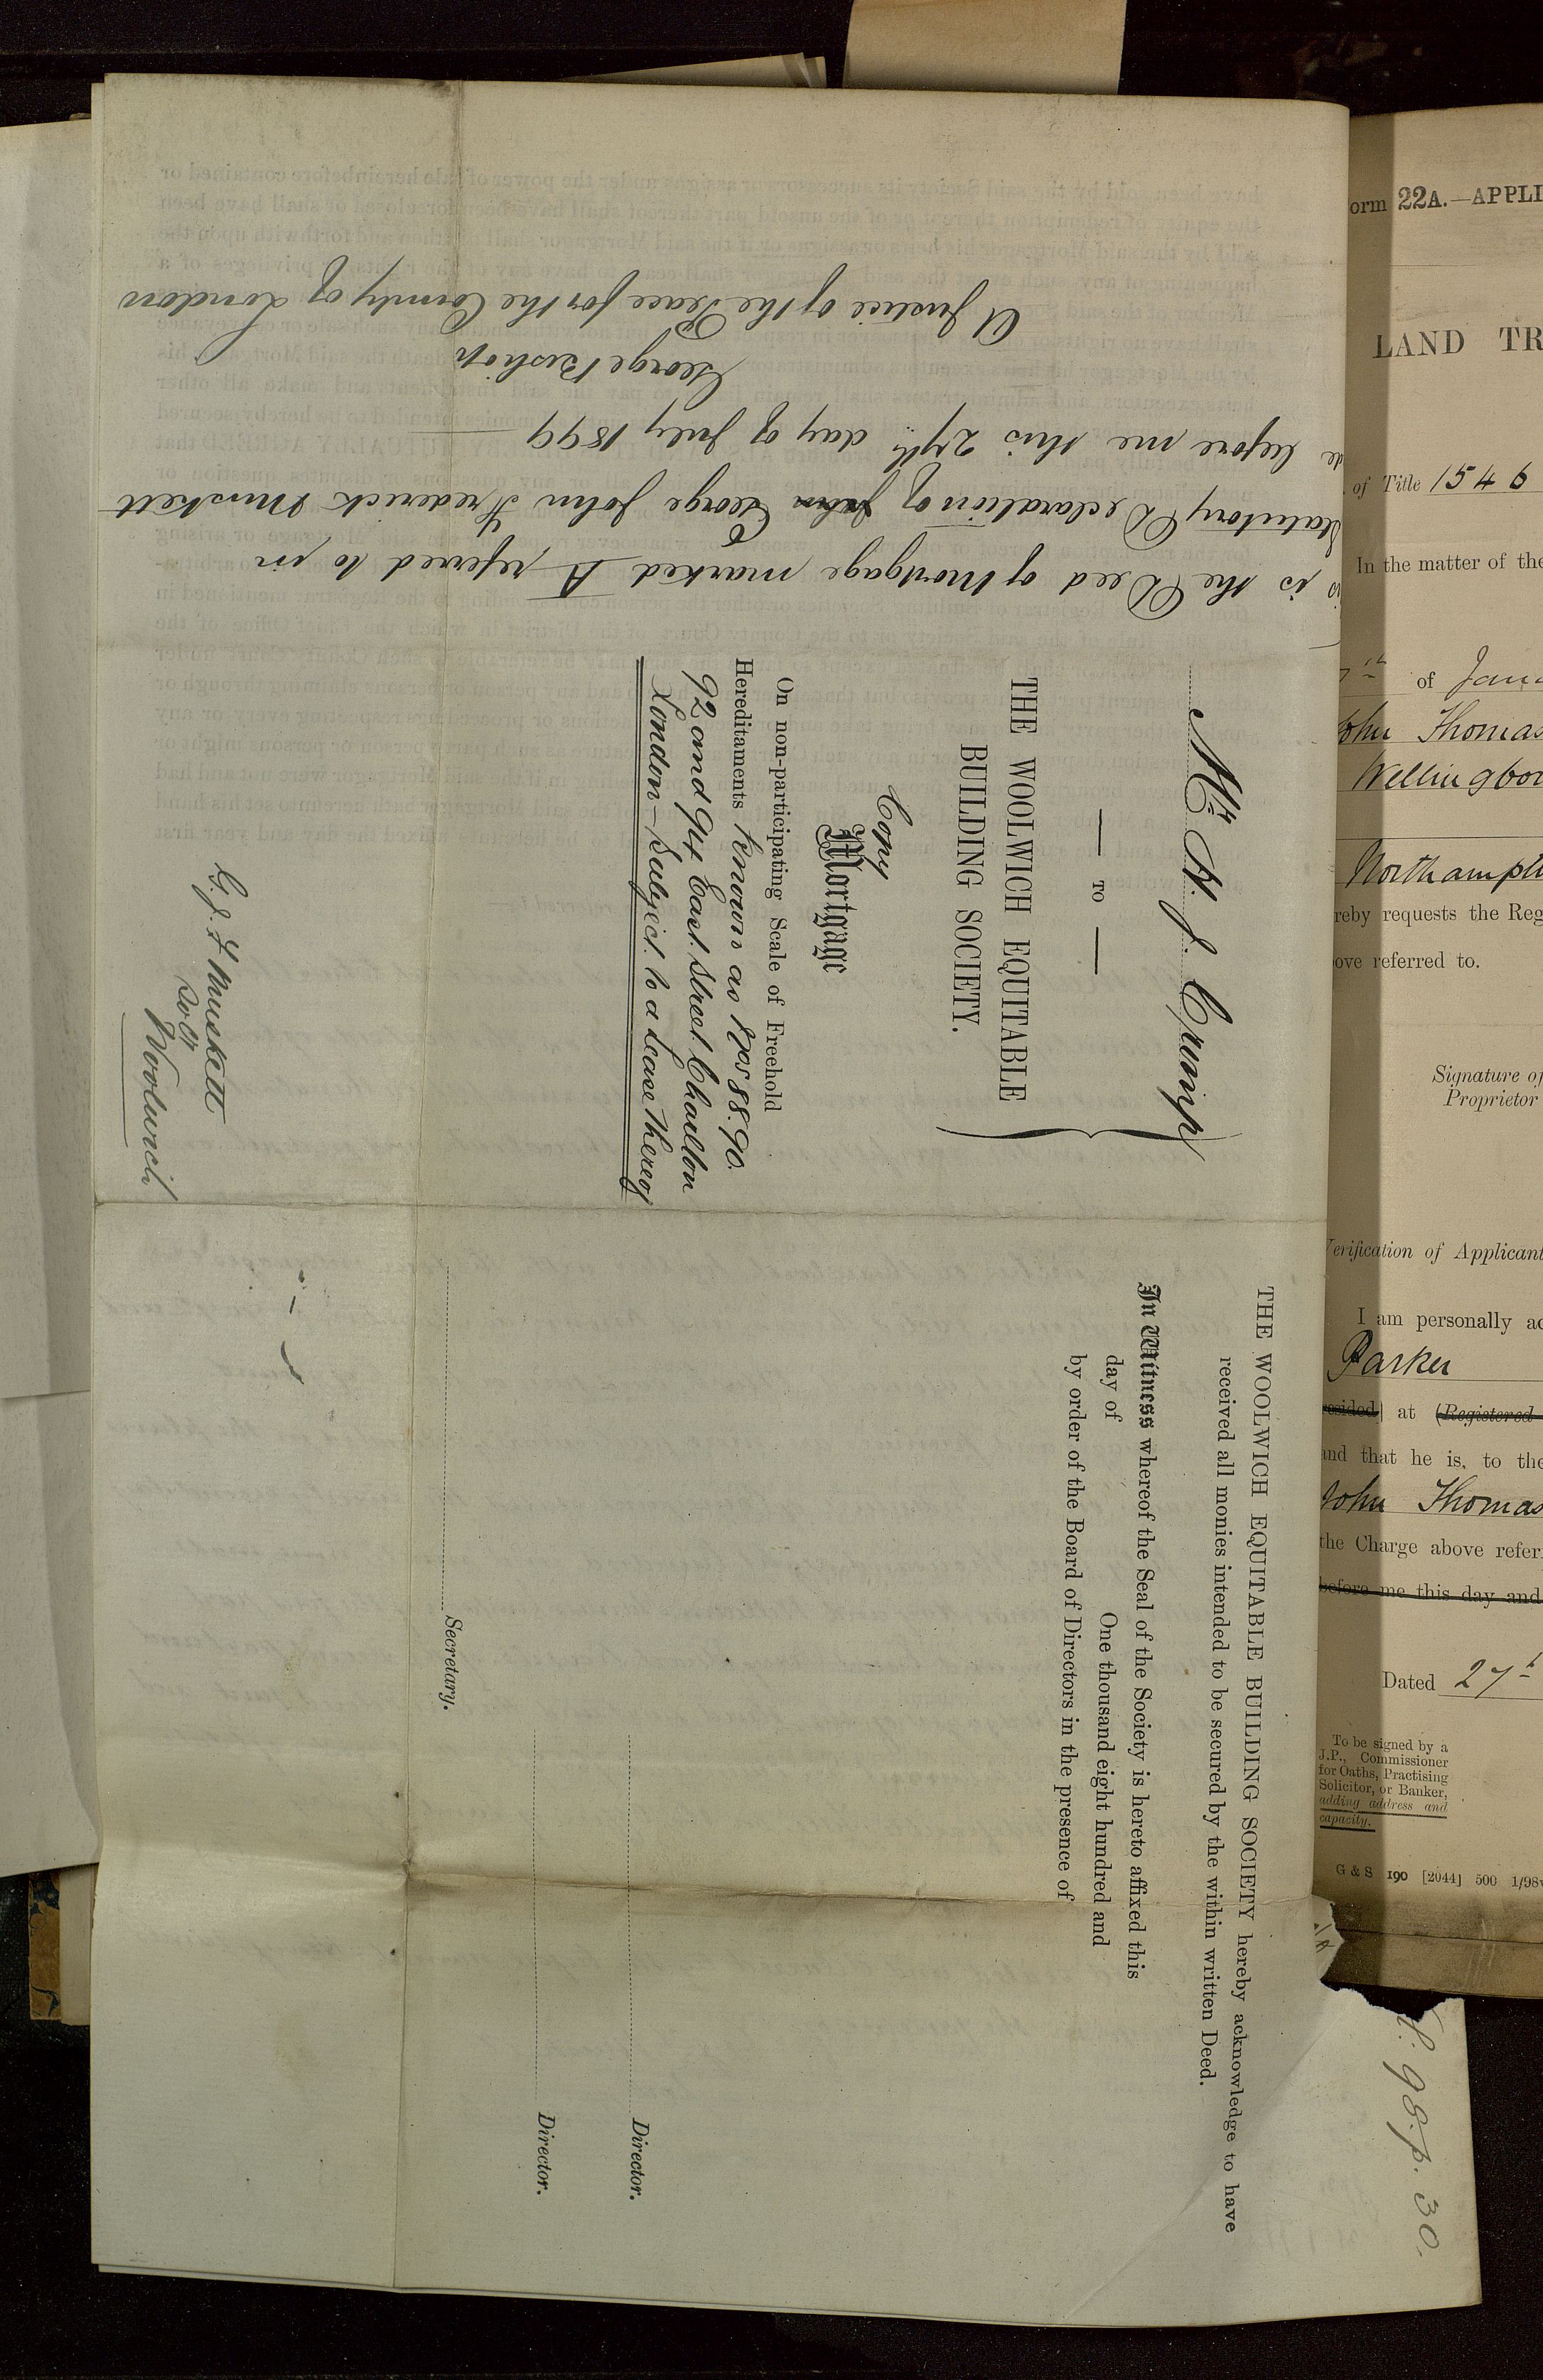 is is the Deed of Mortgage marked A referred to in
Statutory Declaration of John George John Frederick Muskett
de before me this 27th day of July 1899
George Bishop
A Justice of the Peace for the County of London
Mr H. J. Crump
— TO —
THE WOOLWICH EQUITABLE
BUILDING SOCIETY.
Copy
Mortgage
On non-participating Scale of Freehold
Hereditaments known as Nos 88. 90.
92 and 94 East Street Charlton
London — Subject to a Lease thereof
G. J. F Muskett
Solr
Woolwich
THE WOOLWICH EQUITABLE BUILDING SOCIETY hereby acknowledge to have
received all monies intended to be secured by the within written Deed.
In Witness whereof the Seal of the Society is hereto affixed this
day of One thousand eight hundred and
by order of the Board of Directors in the presence of
Director.
Director.
Secretary.
orm 22A.—APPLI
LAND TR
of Title 1546
In the matter of the
of Jan
John Thomas
Wellingbor
Northampt
reby requests the Reg
ove referred to.
Signature of
Proprietor
Verification of Applicant
I am personally ac
Parker
resided) at (Registered
and that he is, to the
John Thomas
the Charge above refer
before me this day and
Dated 27th
To be signed by a
J.P., Commissioner
for Oaths, Practising
Solicitor, or Banker,
adding address and
capacity.
G & S 190 [2044] 500 1/98
98. p. 30.